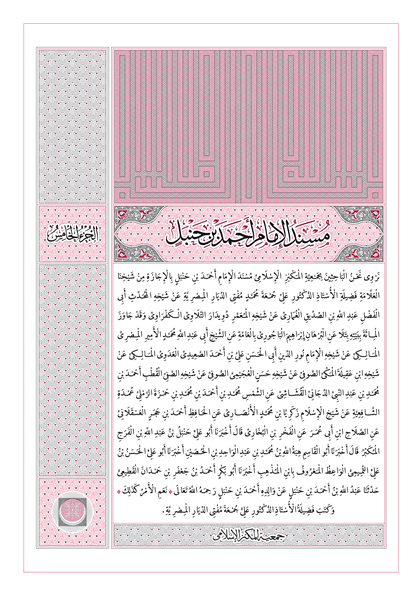 مُسْنَدُ الإِمَامِ أَحْمَدَ بْنِ حَنْبَلٍ
الجُزْءُ الخَامِسُ
نَرْوِى نَحْنُ الْبَاحِثِينَ بِجَمْعِيَّةِ الْمَكْنِزِ الإِسْلَامِىِّ مُسْنَدَ الإِمَامِ أَحْمَدَ بْنِ حَنْبَلٍ بِالإِجَازَةِ عَنْ شَيْخِنَا
الْعَلَّامَةِ فَضِيلَةِ الأُسْتَاذِ الدُّكْتُورِ عَلِىّ جُمْعَةَ مُحَمَّدٍ مُفْتِى الدِّيَارِ الْمِصْرِيَّةِ عَنْ شَيْخِهِ الْمُحَدِّثِ أَبِى
الْفَضْلِ عَبْدِ اللَّهِ بْنِ الصِّدِّيقِ الْغُمَارِىِّ عَنْ شَيْخِهِ الْمُعَمَّرِ دُوِيدَارَ التَّلَاوِىِّ الْكَفْرَاوِىِّ وَقَدْ جَاوَزَ
الْمِائَةَ بِيَقِينٍ عَنْ الْبُرْهَانِ إِبْرَاهِيمَ الْبَاجُورِىِّ بِالْعَامَّةِ عَنِ الشَّيْخِ أَبِى عَبْدِ اللَّهِ مُحَمَّدٍ الأَمِيرِ الْمِصْرِىِّ
الْمَالِكِىِّ عَنْ شَيْخِهِ الإِمَامِ نُورِ الدِّينِ أَبِى الْحَسَنِ عَلِىِّ بْنِ أَحْمَدَ الصَّعِيدِىِّ الْعَدَوِىِّ الْمَالِكِىِّ عَنْ
شَيْخِهِ ابْنِ عَقِيلَةَ الْمَكِّىِّ الصُّوفِىِّ عَنْ شَيْخِهِ حَسَنٍ الْعُجَيْمِىِّ الصُّوفِىِّ عَنْ شَيْخِهِ الصَّفِىِّ الْقُطْبِ أَحْمَدَ بْنِ
مُحَمَّدِ بْنِ عَبْدِ النَّبِىِّ الدَّجَانِىِّ الْقُشَاشِىِّ عَنِ الشَّمْسِ مُحَمَّدِ بْنِ أَحْمَدَ بْنِ مُحَمَّدِ بْنِ حَمْزَةَ الرَّمْلِىِّ عُمْدَةِ
الشَّافِعِيَّةِ عَنْ شَيْخِ الإِسْلَامِ زَكَرِيَّا بْنِ مُحَمَّدٍ الأَنْصَارِىِّ عَنِ الْحَافِظِ أَحْمَدَ بْنِ حَجَرٍ الْعَسْقَلَانِىِّ
عَنِ الصَّلَاحِ ابْنِ أَبِى عُمَرَ عَنِ الْفَخْرِ بْنِ الْبُخَارِىِّ قَالَ أَخْبَرَنَا أَبُو عَلِىٍّ حَنْبَلُ بْنُ عَبْدِ اللَّهِ بْنِ الْفَرَجِ
الْمُكَبِّرُ قَالَ أَخْبَرَنَا أَبُو الْقَاسِمِ هِبَةُ اللَّهِ بْنُ مُحَمَّدِ بْنِ عَبْدِ الْوَاحِدِ بْنِ الْحُصَيْنِ أَخْبَرَنَا أَبُو عَلِىٍّ الْحَسَنُ بْنُ
عَلِىٍّ التَّمِيمِىُّ الْوَاعِظُ الْمَعْرُوفُ بِابْنِ الْمُذْهِبِ أَخْبَرَنَا أَبُو بَكْرٍ أَحْمَدُ بْنُ جَعْفَرِ بْنِ حَمْدَانَ الْقَطِيعِىُّ
حَدَّثَنَا عَبْدُ اللَّهِ بْنُ أَحْمَدَ بْنِ حَنْبَلٍ عَنْ وَالِدِهِ أَحْمَدَ بْنِ حَنْبَلٍ رَحِمَهُ اللَّهُ تَعَالَى * نَعَمِ الأَمْرُ كَذَلِكَ *
وَكَتَبَ فَضِيلَةُ الأُسْتَاذِ الدُّكْتُورِ عَلِىّ جُمْعَةَ مُفْتِى الدِّيَارِ الْمِصْرِيَّةِ.
جمعية المكنز الإسلامى